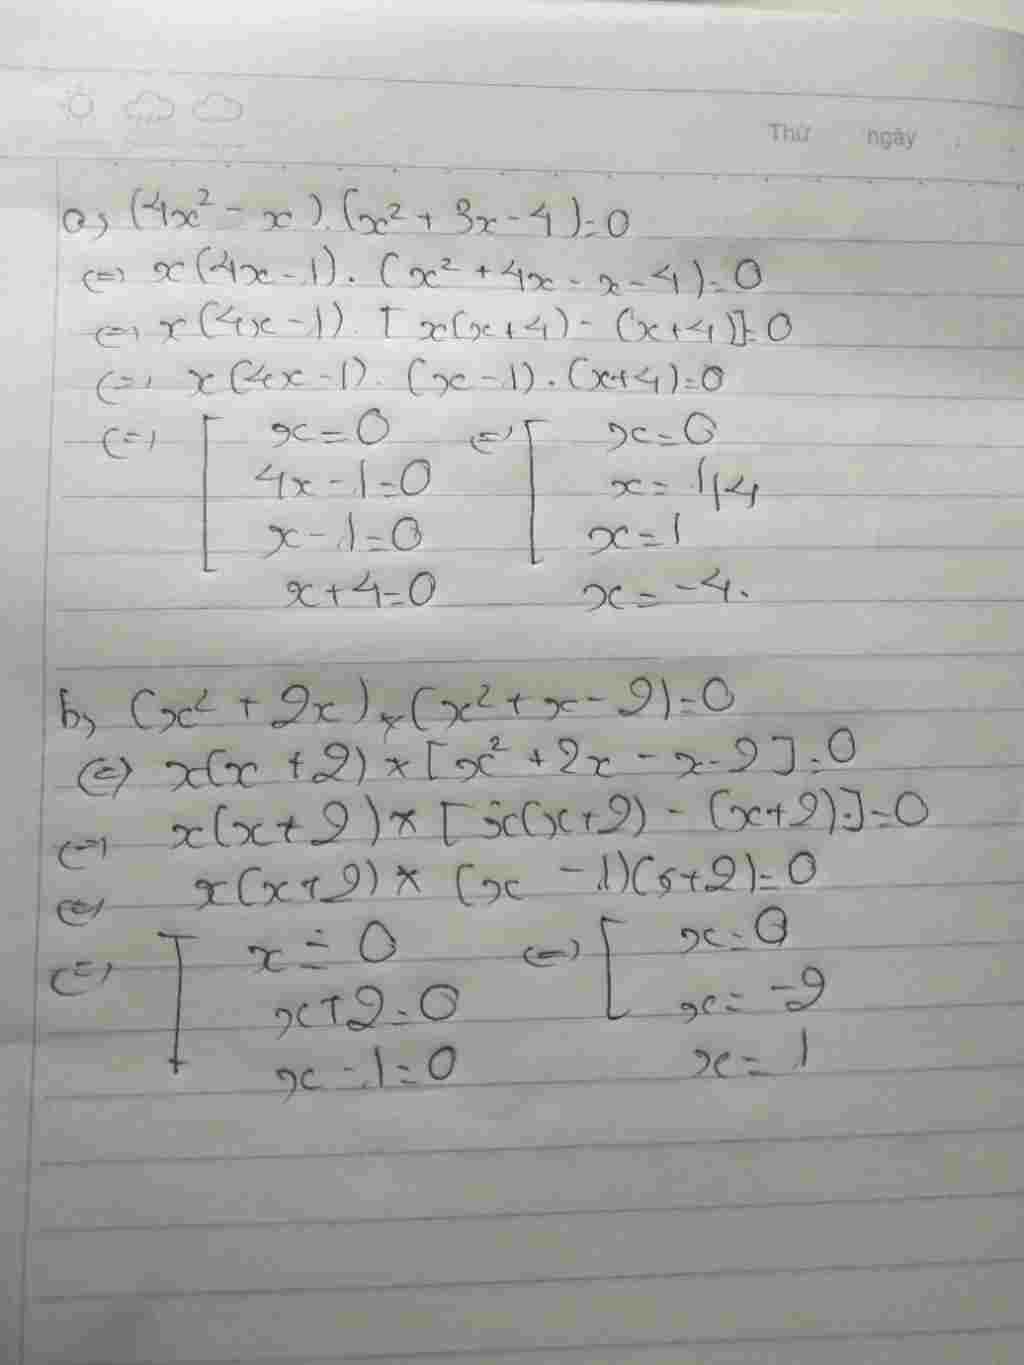 Thứ ngày
a, (4x² - x).(x² + 3x - 4)=0
(=) x(4x - 1). (x² + 4x - x - 4)=0
(=) x(4x - 1). [x(x+4) - (x+4)]=0
(=) x(4x - 1). (x - 1).(x+4)=0
(=) [ x=0 (=) [ x=0
4x - 1=0 x= 1/4
x - 1=0 x=1
x+4=0 x= -4.
b, (x² + 2x)*(x² + x - 2)=0
(=) x(x + 2)*[x² + 2x - x - 2]=0
(=) x(x + 2)*[x(x+2) - (x+2)]=0
(=) x(x+2)* (x - 1)(s+2)=0
(=) [ x = 0 (=) [ x=0
x+2=0 x= -2
x - 1=0 x= 1